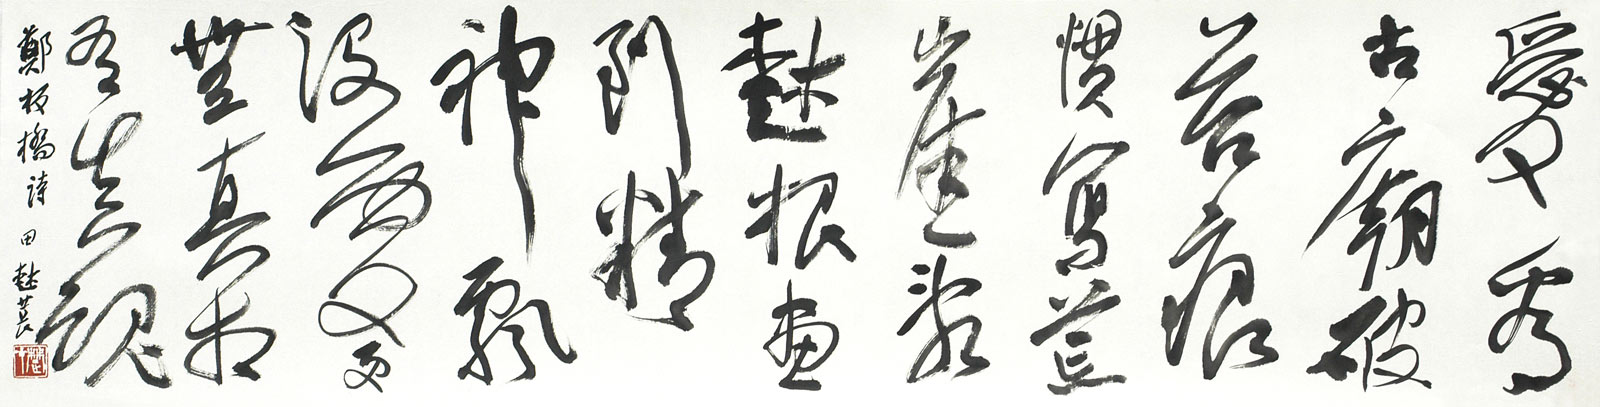 愛看
古廟破
苔痕
慣寫荒
崖亂
樹根畫
到精
神飄
没處更
無真相
有真魂
鄭板橋詩 田樹萇